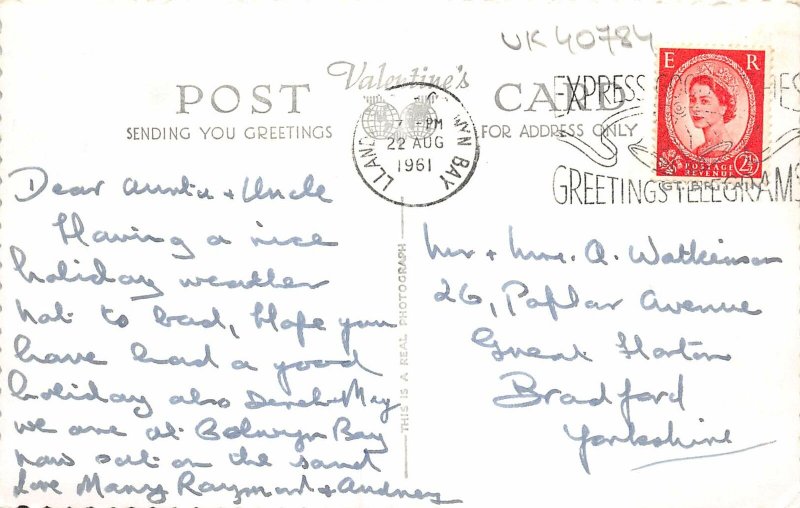 UK 40784
POST
Valentine's
CARD
SENDING YOU GREETINGS
FOR ADDRESS ONLY
LLAND WYN BAY
PM
22 AUG
1961
EXPRESS
GREETINGS TELEGRAMS
E R
POSTAGE
REVENUE
2½D
GT. BRITAIN
Dear Auntie + Uncle
Having a nice
holiday weather
not to bad, Hope you
have had a good
holiday also Derek + May
we are at Colwyn Bay
now sat on the sand
Love Mary Raymond + Audrey
THIS IS A REAL PHOTOGRAPH
Mr + Mrs. A. Watkinson
26, Poplar Avenue
Great Horton
Bradford
Yorkshire